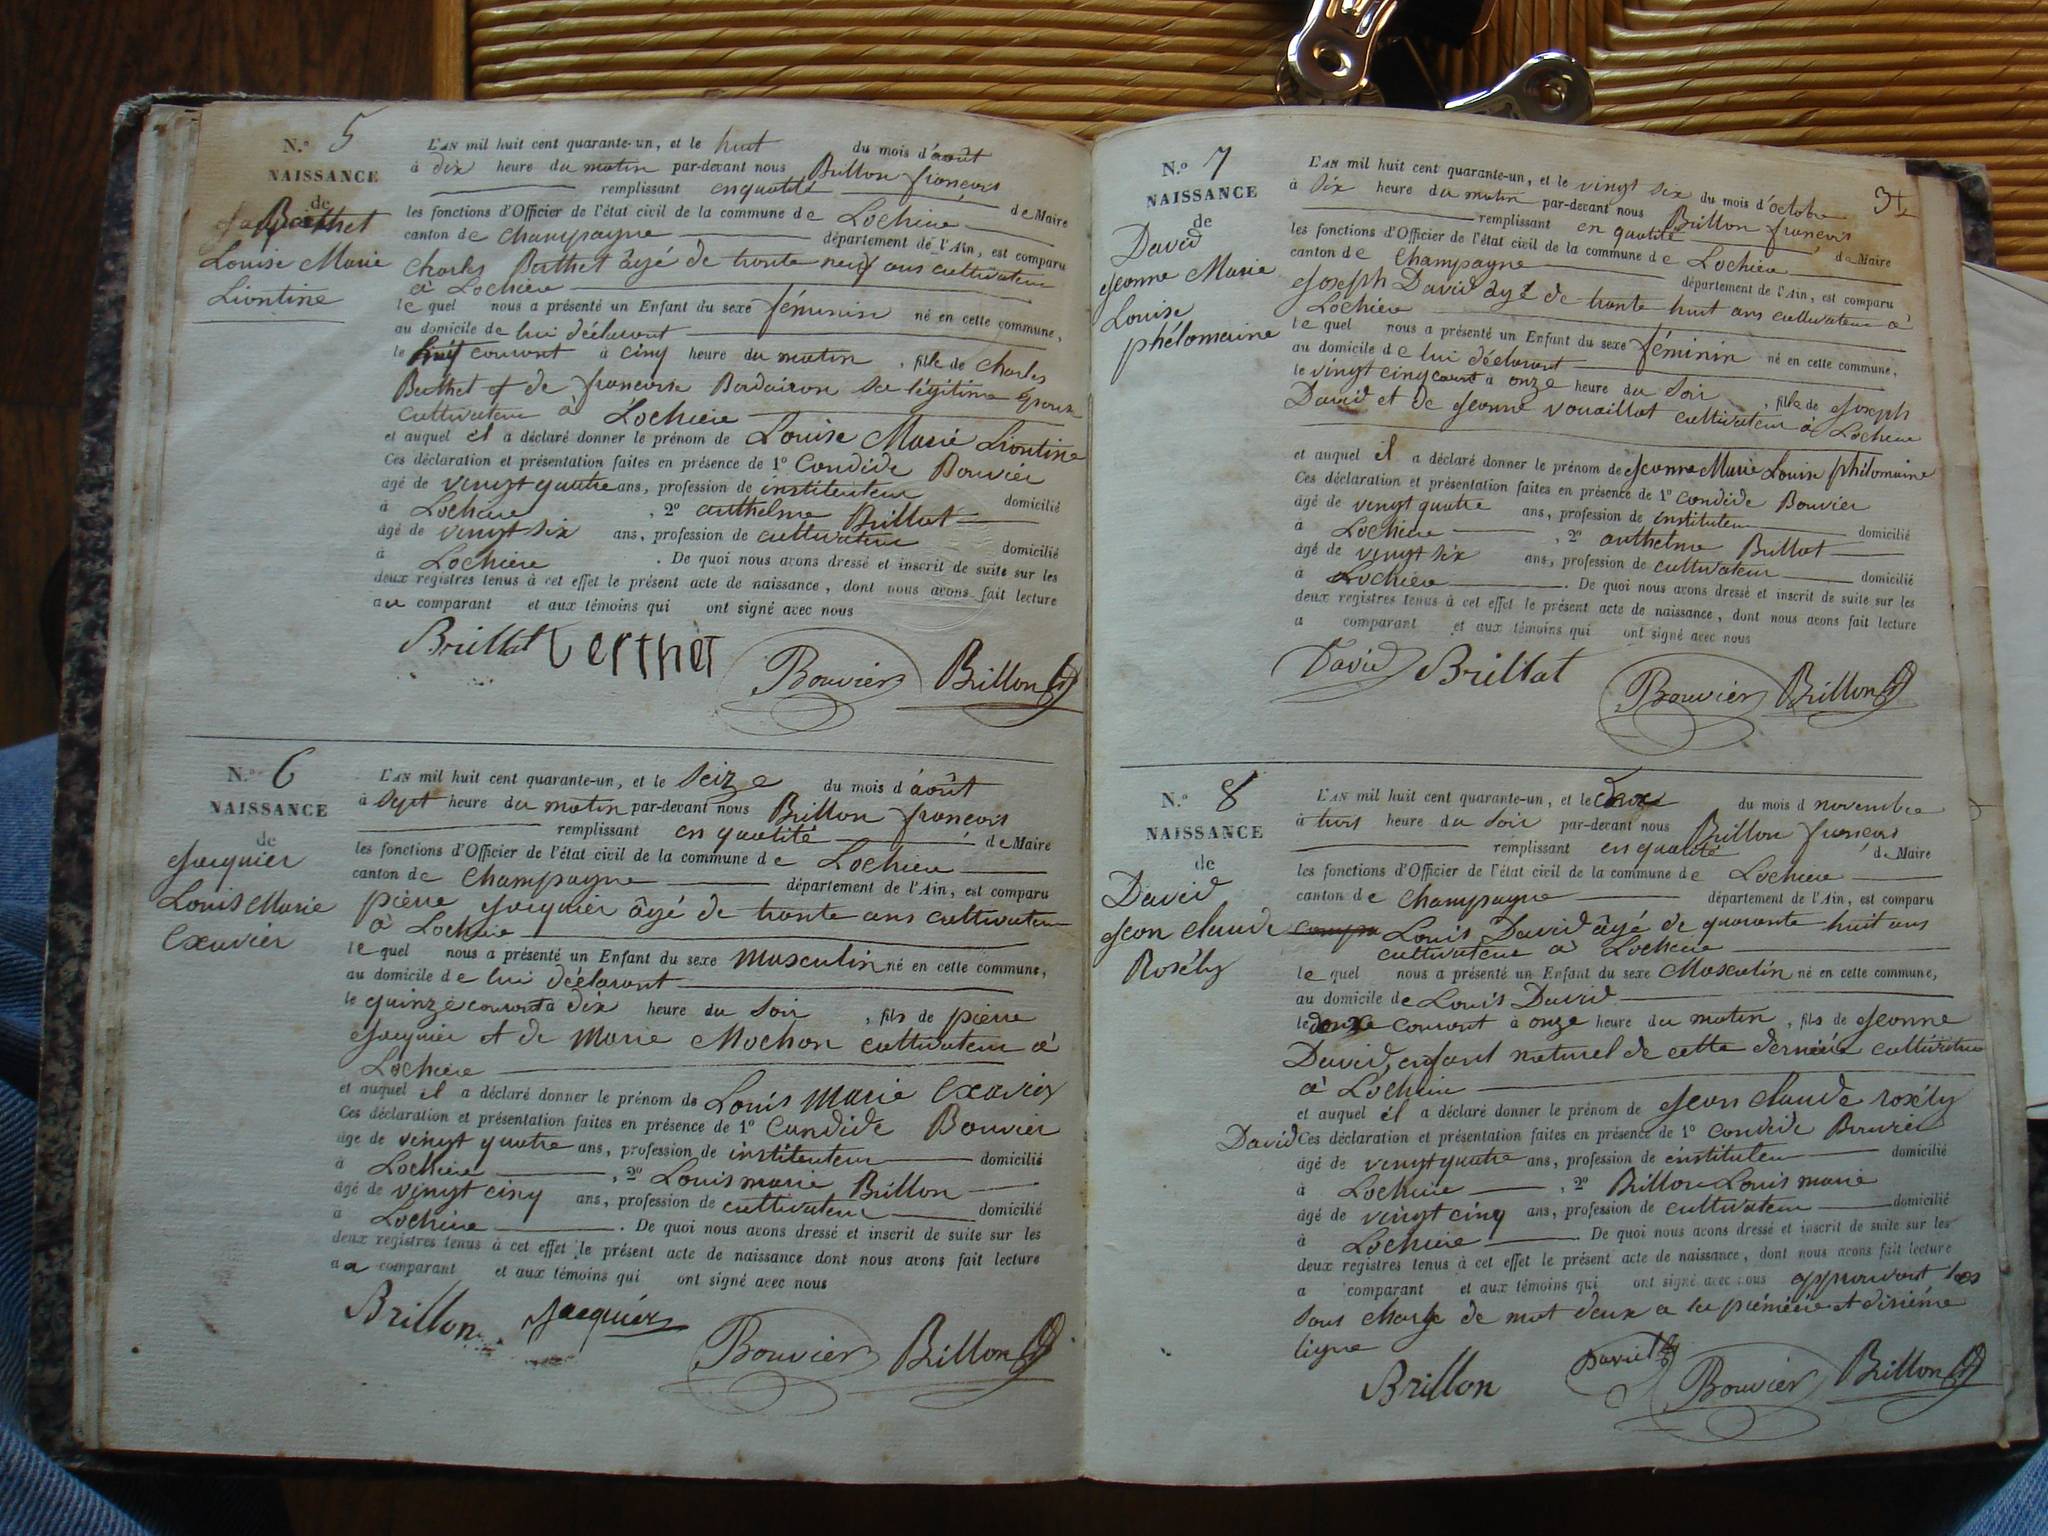 N.º 5
NAISSANCE
de
Berthet
Louise Marie
Liontine
L'AN mil huit cent quarante-un, et le huit du mois d'août
à dix heure du matin par-devant nous Brillon françois
remplissant en qualité de Maire
les fonctions d'Officier de l'état civil de la commune de Lochieu
canton de Champagne département de l'Ain, est comparu
Charles Berthet âgé de trente neuf ans cultivateur
à Lochieu
le quel nous a présenté un Enfant du sexe féminin né en cette commune,
au domicile de lui déclarant
le courant à cinq heure du matin, fille de Charles
Berthet et de francoise sa légitime epouse
cultivateur à Lochieu
et auquel il a déclaré donner le prénom de Louise Marie Liontine
Ces déclaration et présentation faites en présence de 1º Candide Bouvier
âgé de vingt quatre ans, profession de instituteur domicilié
à Lochieu, 2º anthelme Brillat
âgé de vingt six ans, profession de cultivateur domicilié
à Lochieu. De quoi nous avons dressé et inscrit de suite sur les
deux registres tenus à cet effet le présent acte de naissance, dont nous avons fait lecture
au comparant et aux témoins qui ont signé avec nous
Brillat Berthet Bouvier Brillon
N.º 6
NAISSANCE
de
Jacquier
Louis Marie
Exavier
L'AN mil huit cent quarante-un, et le seize du mois d'août
à sept heure du matin par-devant nous Brillon françois
remplissant en qualité de Maire
les fonctions d'Officier de l'état civil de la commune de Lochieu
canton de Champagne département de l'Ain, est comparu
pierre Jacquier âgé de trente ans cultivateur
à Lochieu
le quel nous a présenté un Enfant du sexe masculin né en cette commune,
au domicile de lui déclarant
le quinze courant à dix heure du soir, fils de pierre
Jacquier et de Marie Mochon cultivateur à
Lochieu
et auquel il a déclaré donner le prénom de Louis Marie Exavier
Ces déclaration et présentation faites en présence de 1º Candide Bouvier
âgé de vingt quatre ans, profession de instituteur domicilié
à Lochieu, 2º Louis marie Brillon
âgé de vingt cinq ans, profession de cultivateur domicilié
à Lochieu. De quoi nous avons dressé et inscrit de suite sur les
deux registres tenus à cet effet le présent acte de naissance dont nous avons fait lecture
au comparant et aux témoins qui ont signé avec nous
Brillon Jacquier Bouvier Brillon
N.º 7
NAISSANCE
de
David
Jeanne Marie
Louise
phélomaine
L'AN mil huit cent quarante-un, et le vingt six du mois d'octobre
à six heure du matin par-devant nous Brillon françois
remplissant en qualité de Maire
les fonctions d'Officier de l'état civil de la commune de Lochieu
canton de Champagne département de l'Ain, est comparu
Joseph David âgé de trente huit ans cultivateur à
Lochieu
le quel nous a présenté un Enfant du sexe féminin né en cette commune,
au domicile de lui déclarant
le vingt cinq court à onze heure du soir, fille de Joseph
David et de Jeanne vouaillat cultivateur à Lochieu
et auquel il a déclaré donner le prénom de Jeanne Marie Louise phélomaine
Ces déclaration et présentation faites en présence de 1º Candide Bouvier
âgé de vingt quatre ans, profession de instituteur domicilié
à Lochieu, 2º anthelme Brillat
âgé de vingt six ans, profession de cultivateur domicilié
à Lochieu. De quoi nous avons dressé et inscrit de suite sur les
deux registres tenus à cet effet le présent acte de naissance, dont nous avons fait lecture
a comparant et aux témoins qui ont signé avec nous
David Brillat Bouvier Brillon
N.º 8
NAISSANCE
de
David
Jean claude
Rosély
L'AN mil huit cent quarante-un, et le du mois d novembre
à trois heure du soir par-devant nous Brillon françois
remplissant en qualité de Maire
les fonctions d'Officier de l'état civil de la commune de Lochieu
canton de Champagne département de l'Ain, est comparu
Louis David âgé de quarante huit ans
cultivateur à Lochieu
le quel nous a présenté un Enfant du sexe Masculin né en cette commune,
au domicile de Louis David
le courant à onze heure du matin, fils de Jeanne
David, enfant naturel de cette dernière cultivateur
à Lochieu
et auquel il a déclaré donner le prénom de Jean claude rosély
David Ces déclaration et présentation faites en présence de 1º Candide Bouvier
âgé de vingt quatre ans, profession de instituteur domicilié
à Lochieu, 2º Brillon Louis marie
âgé de vingt cinq ans, profession de cultivateur domicilié
à Lochieu. De quoi nous avons dressé et inscrit de suite sur les
deux registres tenus à cet effet le présent acte de naissance, dont nous avons fait lecture
a comparant et aux témoins qui ont signé avec nous approuvant les
sous charge de mot deux a la première et dixième
ligne
Brillon David Bouvier Brillon